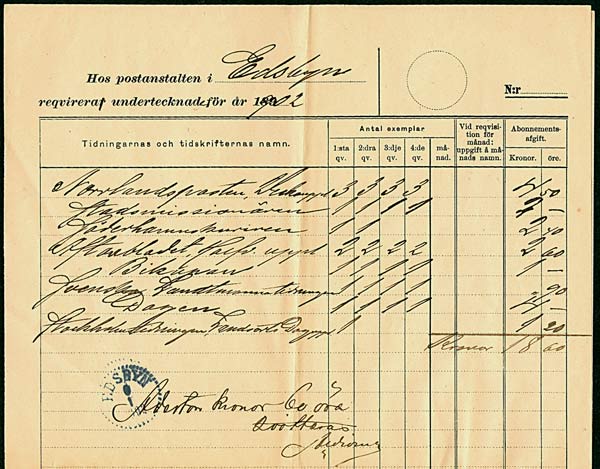 Hos postanstalten i Edsbyn
reqvireras undertecknad för år 1902
N:r
Tidningarnas och tidskrifternas namn.
Antal exemplar
1:sta qv.
2:dra qv.
3:dje qv.
4:de qv.
må-
nad.
Vid reqvisi-
tion för
månad:
uppgift å må-
nads namn.
Abonnements-
afgift.
Kronor.
öre.
Norrlandsposten, 3 3 3 3 4 50
Stadsmissionären 1 1 1 1
Söderhamnskuriren 1 1 2 40
Aftonbladet, Half. uppl 2 2 2 2 2 60
Bikupan 1 1 1 1 1 —
Svenska Landtmanna tidningen 1 1 1 1 90
Dagen 1 1 1 1 4 —
Stockholms tidningen, Landsorts 1 1 20
Kronor 18 60
EDSBYN
Aderton kronor 60 öre
qvitteras